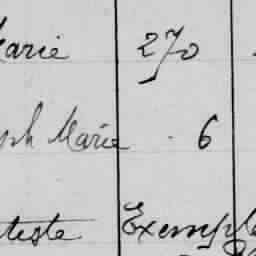 Marie 270
ph Marie 6
tiste Exemple